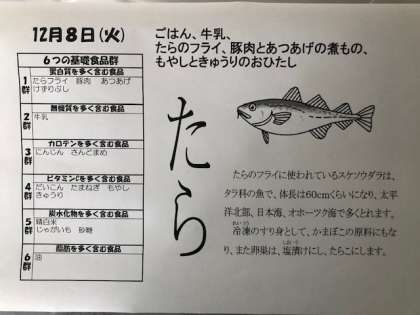 12月8日(火)
ごはん、牛乳、
たらのフライ、豚肉とあつあげの煮もの、
もやしときゅうりのおひたし
6つの基礎食品群
蛋白質を多く含む食品
1群
たらフライ 豚肉 あつあげ
けずりぶし
無機質を多く含む食品
2群
牛乳
カロテンを多く含む食品
3群
にんじん さんどまめ
ビタミンCを多く含む食品
4群
だいこん たまねぎ もやし
きゅうり
炭水化物を多く含む食品
5群
精白米
じゃがいも 砂糖
脂肪を多く含む食品
6群
油
たら
たらのフライに使われているスケソウダラは、
タラ科の魚で、体長は60cmくらいになり、太平
洋北部、日本海、オホーツク海で多くとれます。
れいとう
冷凍のすり身として、かまぼこの原料にもな
しおづ
り、また卵巣は、塩漬けにし、たらこにします。